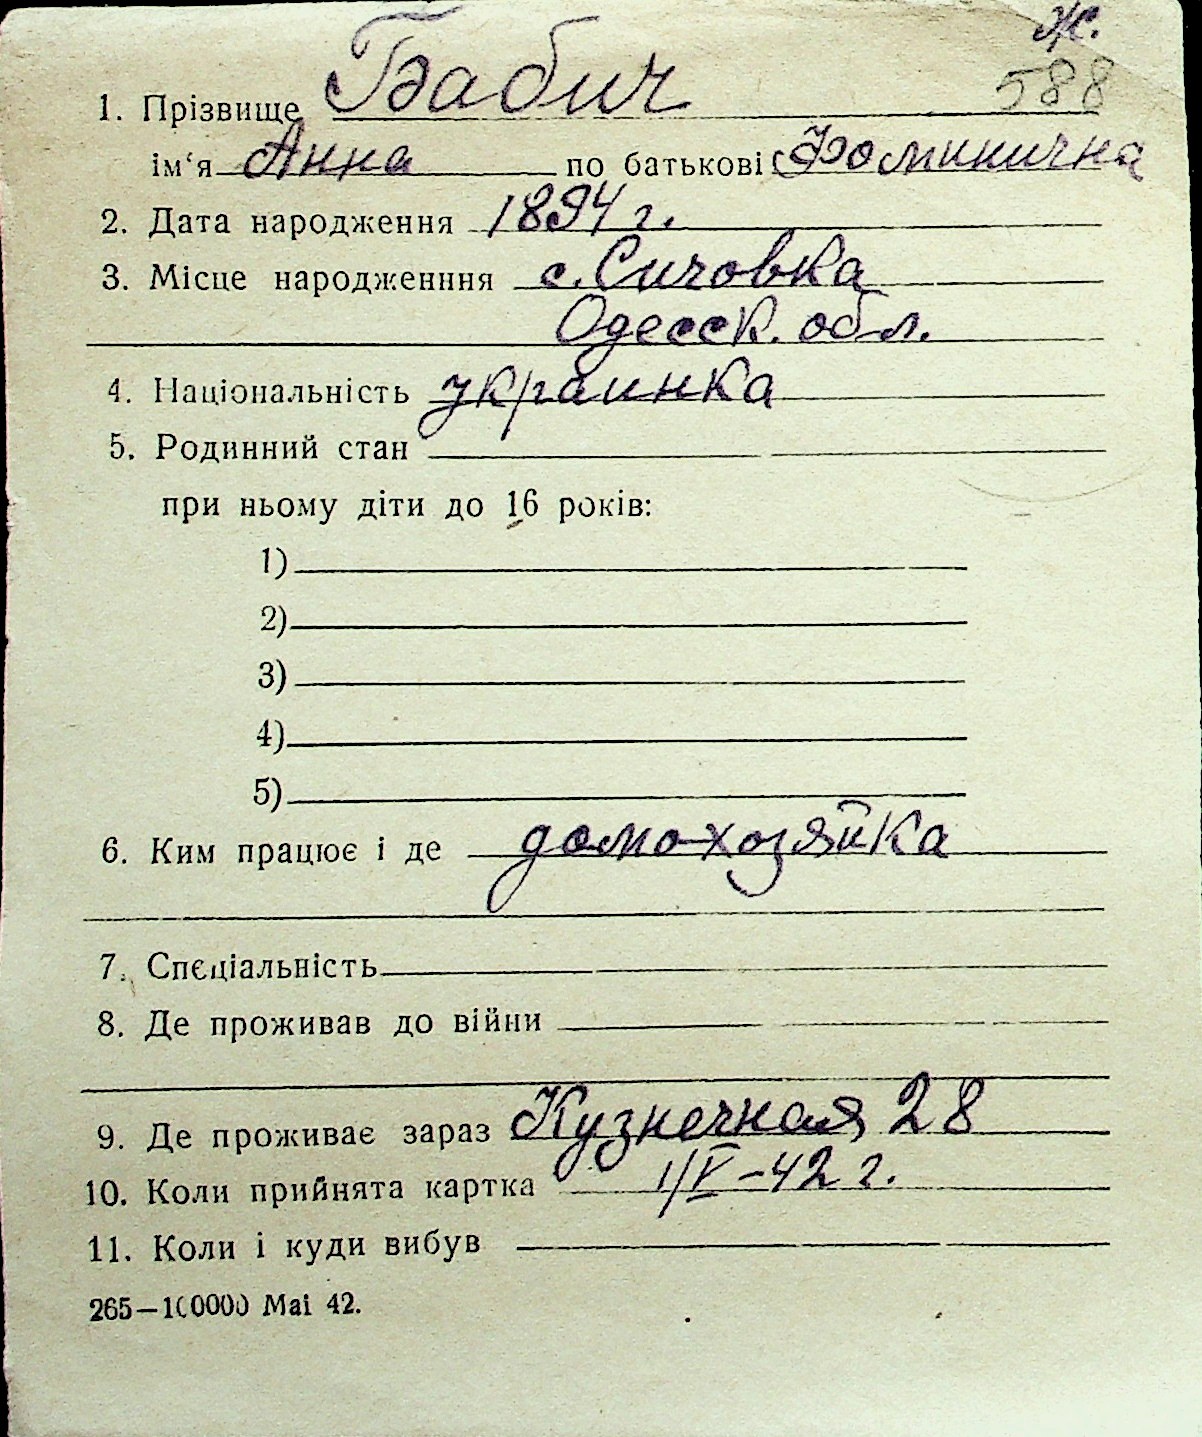 Ж.
588
1. Прізвище Бабич
ім‘я Анна по батькові Фоминична
2. Дата народження 1894 г.
3. Місце народженння с. Сичовка
Одесск. обл.
4. Національність украинка
5. Родинний стан
при ньому діти до 16 років:
1)
2)
3)
4)
5)
6. Ким працює і де домохозяйка
7. Спєціальність
8. Де проживав до війни
9. Де проживає зараз Кузнечная 28
10. Коли прийнята картка 1/V–42 г.
11. Коли і куди вибув
265—100000 Mai 42.